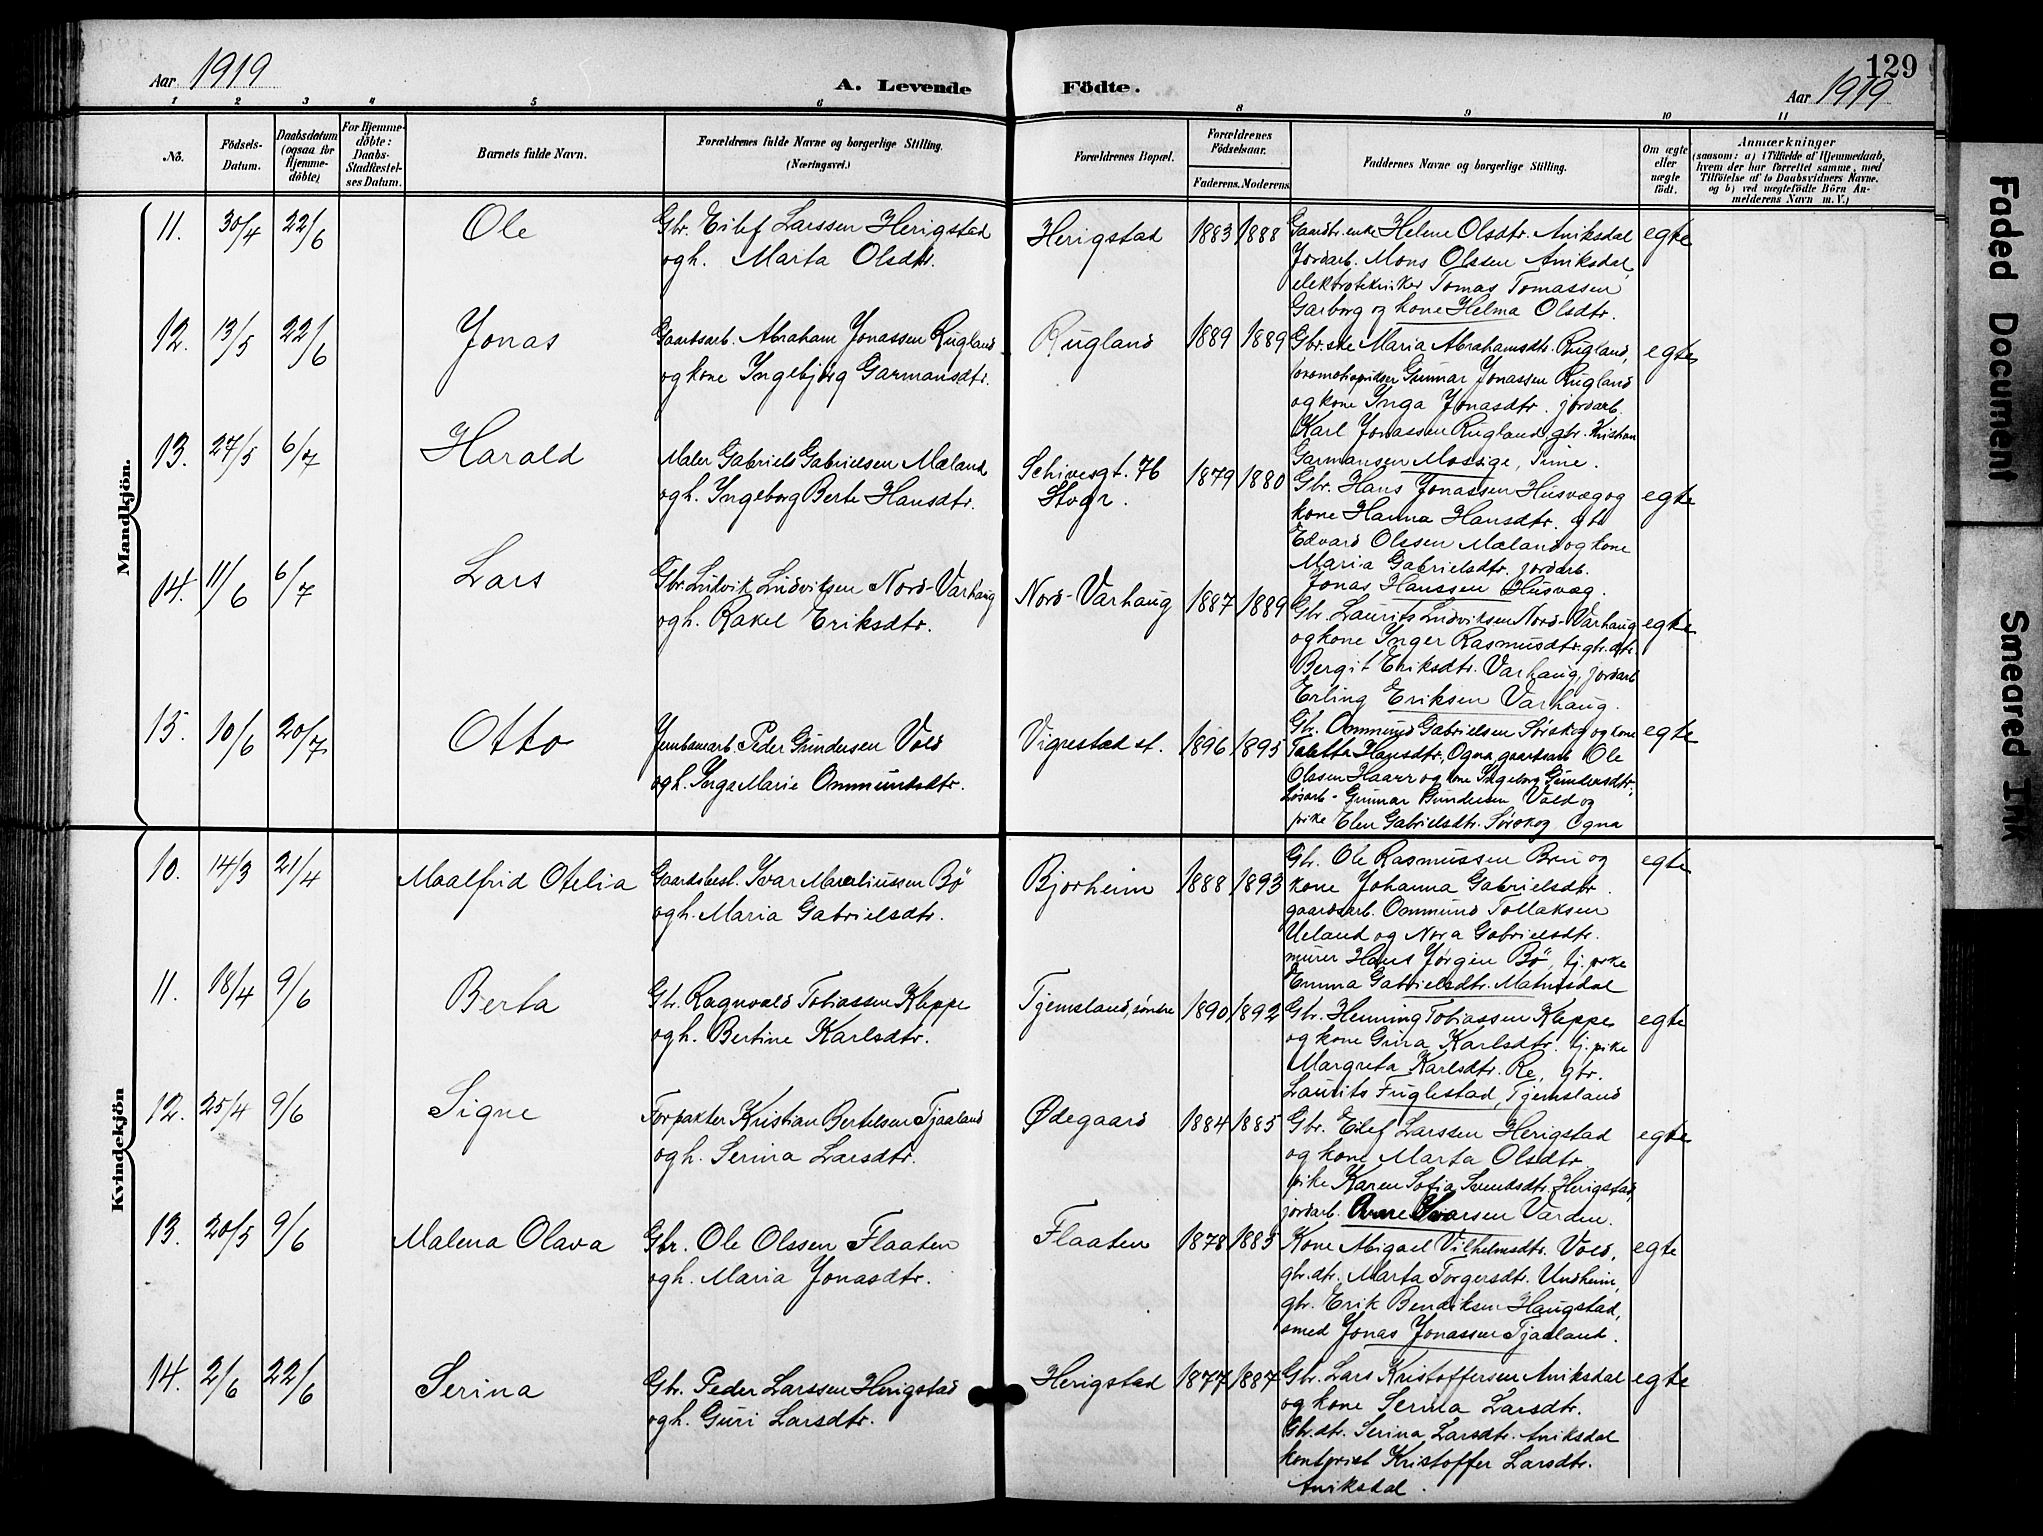 Aar 1919
A. Levende
Födte.
129
Aar 1919
1 2 3 4 5 6 8 9 10 11
No.
Födsels-
Datum.
Daabsdatum
(ogsaa for
Hjemme-
döbte)
For Hjemme-
döbte:
Daabs-
Stadfæstel-
ses Datum.
Barnets fulde Navn.
Forældrenes fulde Navne og borgerlige Stilling.
(Næringsvei.)
Forældrenes Bopæl.
Forældrenes
Födselsaar.
Faderens. Moderens
Faddernes Navne og borgerlige Stilling.
Om ægte
eller
uægte
födt.
Anmærkninger
(saasom: a) i Tilfælde af Hjemmedaab,
hvem der har forrettet samme, med
Tilföielse af to Daabsvidners Navne.
og b) ved uægtefödte Börn An-
melderens Navn m. V.)
Mandkjön.
11. 30/4 22/6 Ole
Gbr. Eilef Larssen Herigstad
og h. Marta Olsdtr.
Herigstad 1883 1888
Gaardbr. enke Helene Olsdtr. Aniksdal
Jordarb. Mons Olssen Aniksdal,
elektrotekniker Tomas Tomassen
Garborg og kone Helma Olsdtr.
egte
12. 13/5 22/6 Jonas
Gaardsarb. Abraham Jonassen Rugland
og kone Ingebjørg Garmansdtr.
Rugland 1889 1889
Gbr.ske Maria Abrahamsdtr. Rugland,
Gunnar Jonassen Rugland
og kone Inga Jonasdtr. jordarb.
Karl Jonassen Rugland, gbr. Kristian
Garmansen Mossige, Time.
egte
13. 27/5 6/7 Harald
Maler Gabriels Gabrielsen Mæland
og h. Ingeborg Berte Hansdtr.
Schivesgt. 76
Stvgr.
1879 1880
Gbr. Hans Jonassen Husvæg og
kone Hanna Hansdtr. gbr
Edvard Olssen Mæland og kone
Maria Gabrielsdtr. jordarb.
Jonas Hanssen Husvæg.
egte
14. 11/6 6/7 Lars
Gbr. Ludvik Ludviksen Nord-Varhaug
og h. Rakel Eriksdtr.
Nord-Varhaug 1887 1889
Gbr. Laurits Ludviksen Nord-Varhaug
og kone Inger Rasmusdtr. gbr. dtr
Bergit Eriksdtr. Varhaug, jordarb
Erling Eriksen Varhaug.
egte
15. 10/6 20/7 Otto
Jernbanearb. Peder Gundersen Vold
og h. Inga Marie Ommundsdtr.
Vigrestad st. 1896 1895
Gbr. Ommund Gabrielsen Sørskog og kone
Taletta Hagesdtr, Ogna, gaardsarb Ole
Olssen Haarr og kone Ingeborg Gundersdtr,
Løsarb. Gunnar Gundersen Vold og
pike Elen Gabrielsdtr. Sørskog Ogna
egte
Kvindekjön
10. 14/3 21/4 Maalfrid Otelia
Gaardsbest. Ivar Mareliussen Bø
og h. Maria Gabrielsdtr.
Bjorheim 1888 1893
Gbr. Ole Rasmussen Bru og
kone Johanna Gabrielsdtr.
gaardsarb. Ommund Tollaksen
Ueland og Nora Gabrielsdtr.
murer Hans Jørgen Bø, tj. pike
Emma Gabrielsdtr. Matnisdal
egte
11. 18/4 9/6 Berta
Gbr. Ragnvald Tobiassen Kleppe
og h. Bertine Karlsdtr.
Tjemsland, søndre 1890 1892
Gbr. Henning Tobiassen Kleppe
og kone Gura Karlsdtr. tj. pike
Margreta Karlsdtr. Re, gbr.
Laurits Fuglestad, Tjemsland
egte
12. 25/4 9/6 Signe
Forpakter Kristian Bertelsen Tjaaland
og h. Serina Larsdtr.
Ødegaard 1884 1885
Gbr. Eilef Larssen Herigstad
og kone Marta Olsdtr
pike Karen Sofia Svendsdtr. Herigstad,
jordarb. Arne Ivarsen Varden.
egte
13. 20/5 9/6 Malena Olava
Gbr. Ole Olssen Flaaten
og h. Maria Jonasdtr.
Flaaten 1878 1885
Kone Abigael Vilhelmsdtr. Vold,
gbr. dtr. Marta Torgersdtr. Undheim,
gbr. Erik Bendiksen Haugstad,
smed Jonas Jonassen Tjaaland.
egte
14. 2/6 22/6 Serina
Gbr. Peder Larssen Herigstad
og h. Guri Larsdtr.
Herigstad 1877 1887
Gbr. Lars Kristoffersen Aniksdal
og kone Serina Larsdtr.
Gbr. dtr. Serina Larsdtr. Aniksdal
kontorist Kristoffer Larsdtr.
Aniksdal.
egte
Faded Document
Smeared Ink